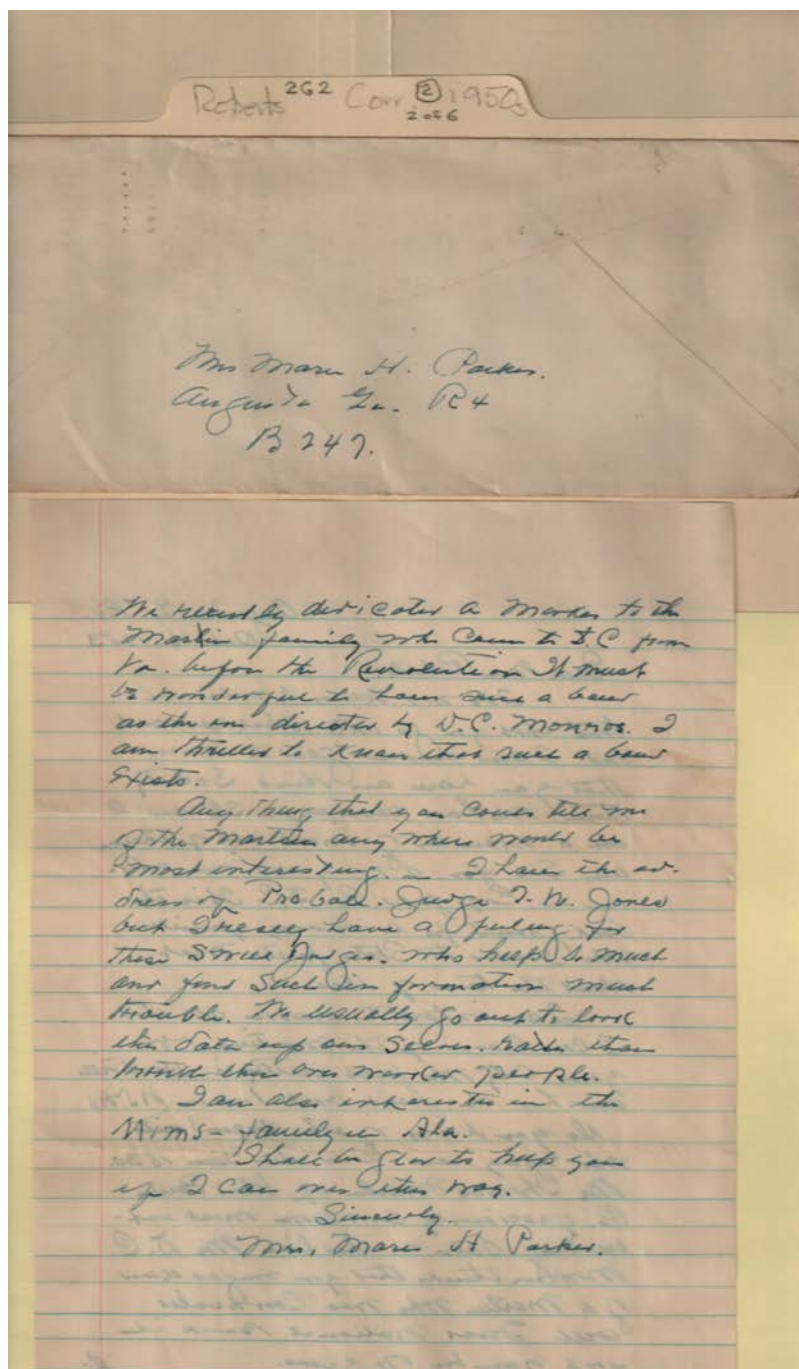 Roberts 2G2 Corr. 2 1950s
2 of 6
Mrs Marie H. Parker.
Augusta Ga. R4
B 247.
We recently dedicated a Marker to the
Martin family who came to S.C from
Va. before the Revolution It must
be wonderful to have such a band
as the one directed by D.C. Monroe. I
am thrilled to know that such a band
exists.
Any thing that you could tell me
of the Martin any where would be
most interesting. I have the ad-
dress of Probate. Judge T. W. Jones
but I really have a feeling for
these Judges. who help so much
and find such information much
trouble. We usually go out to look
this data up our selves. rather than
trouble these over worked people.
I am also interested in the
Mims - family in Ala.
Shall be glad to help you
if I can over this way.
Sincerely.
Mrs. Marie H Parker.